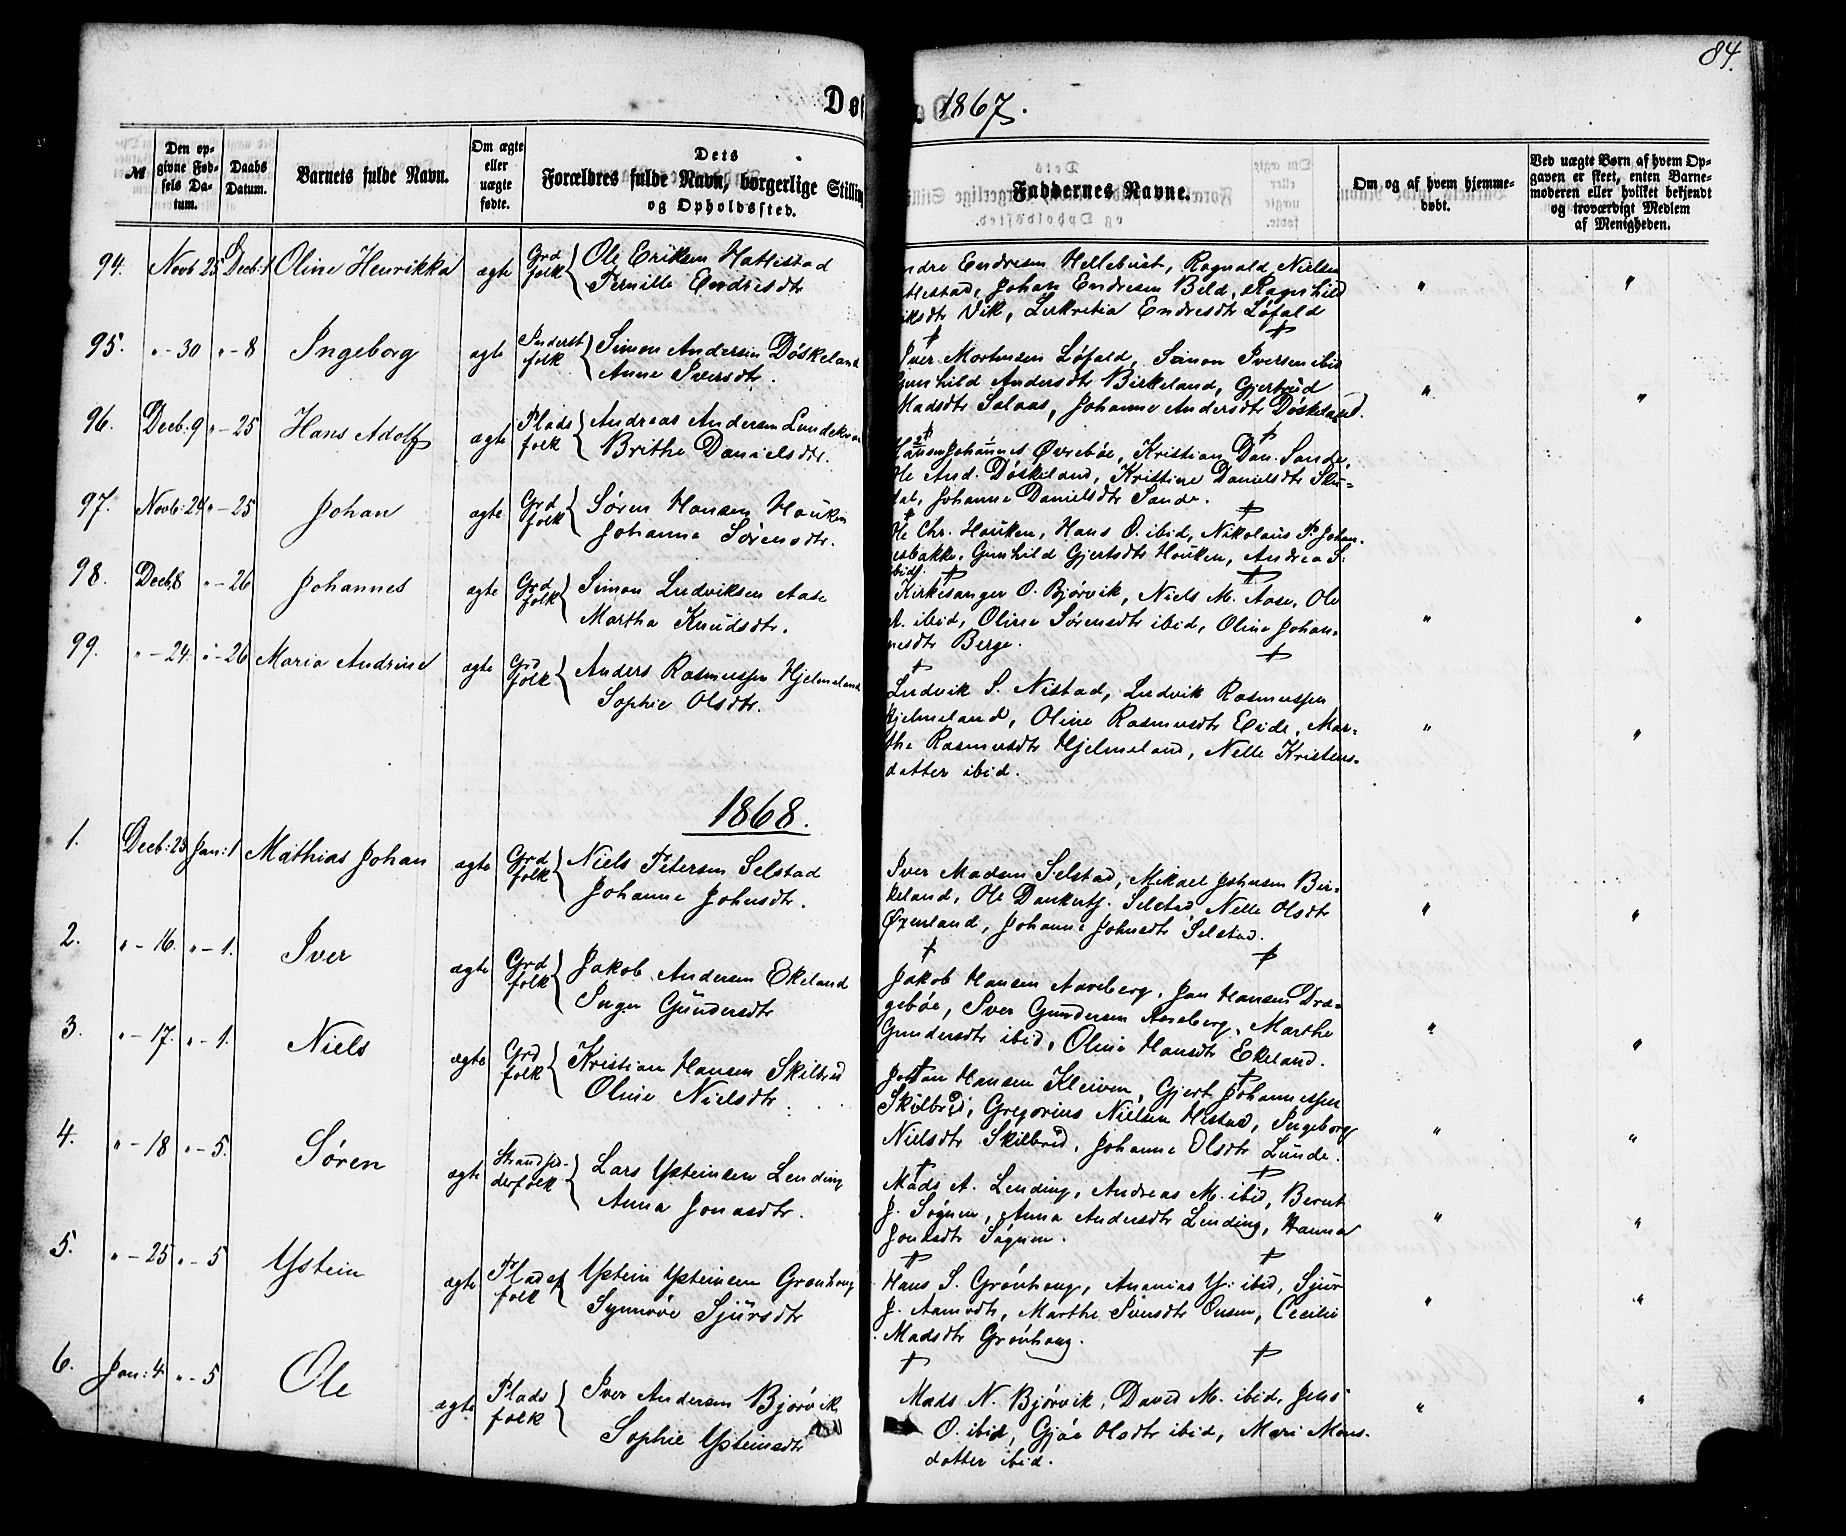 84.
Døb
1867.
№
Den opgivne Fødsels Datum.
Daabs Datum.
Barnets fulde Navn.
Om ægte eller uægte født.
Dets Forældres fulde Navn, borgerlige Stilling og Opholdssted.
Faddernes Navne.
Om og af hvem hjemmedøbt.
Ved uægte Børn af hvem Opgaven er skeet, enten Barnemoderen eller hvilket bekjendt og troværdigt Medlem af Menigheden.
94. Novb 25 Decb: 1 Oline Henrikka ægte Grd folk Ole Eriksen Hatlestad
Pernille Endresdtr
ndre Endresen Hellebust, Ragnald Nielsen
tlestad, Johan Endresen Beld, Ragnhild
iksdtr Vik, Lukretia Endresdtr Løfald
95. " - 30 " - 8 Ingeborg ægte Inderst folk Simon Andersen Døskeland
Anne Iversdtr.
Iver Mortensen Løfald, Simon Iversen ibid
Gunhild Andersdtr Birkeland, Gjertrud
Madsdtr Salaas, Johanne Andersdtr Døskeland.
96. Decb: 9 " - 25 Hans Adolf ægte Plads folk Andreas Andersen
Brithe Danielsdtr.
Hansen Johannes Øvrebøe, Kristian Dan. Sande,
Ole And. Døskeland, Kristine Danielsdtr Sku=
dal, Johanne Danielsdtr Sande.
97. Novb: 24 " - 25 Johan ægte Grd folk Søren Hansen Houken
Johanne Sørensdtr.
Ole Chr. Houken, Hans O. ibid, Nikolaus P. Johan=
esbakke, Gunhild Gjertsdtr Houken, Andrea S.
ibid.
98. Decb: 8 " - 26 Johannes ægte Grd folk Simon Ludviksen Aase
Martha Knudsdtr.
Kirkesanger O. Bjørvik, Niels M. Aase, Ole
A. ibid, Oline Sørensdtr ibid, Oline Johan=
nesdtr Berge.
99. " - 24. " - 26 Maria Andrine ægte Grd folk Anders Rasmussen Hjelmeland
Sophie Olsdtr.
Ludvik S. Nistad, Ludvik Rasmussen
Hjelmeland, Oline Rasmusdtr Eide, Mar=
the Rasmusdtr Hjelmeland, Nelle Kristens=
datter ibid.
1868.
1. Decb: 23 Jan: 1 Mathias Johan ægte Grd folk Niels Petersen Selstad
Johanne Johnsdtr.
Iver Madsen Selstad, Mikael Johnsen Bir=
keland, Ole Dankerts. Selstad Nelle Olsdtr
Øxenland, Johanne Johnsdtr Selstad.
2. " - 16. " - 1. Iver ægte Grd folk Jakob Andersen Ekeland
Inger Gundersdtr
Jakob Hansen Aareberg, Jan Hansen Dra=
gebøe, Iver Gundersen Aareberg, Marthe
Gundersdtr ibid, Oline Hansdtr Ekeland.
3. " - 17. " - 1. Niels ægte Grd folk Kristian Hansen Skilbrid
Oline Nielsdtr.
Johan Hansen Kleiven, Gjert Johannessen
Skilbrid, Gregorius Nielsen Hestad, Ingeborg
Nielsdtr Skilbrid, Johanne Olsdtr Lunde.
4. " - 18 " - 5. Søren ægte Strandsid=
derfolk Lars Ysteinsen Lending
Anna Jonasdtr.
Mads A. Lending, Andreas M. ibid, Bernt
J. Søgnen, Anna Andersdtr Lending, Hanna
Jonasdtr Søgnen.
5. " - 25 " - 5 Ystein ægte Plads folk Ystein Ysteinsen Grønhoug
Synnøve Sjursdtr
Hans S. Grønhoug, Ananias Y. ibid, Sjur
J. Aamodt, Marthe Iversdtr Cecilie
Madsdtr Grønhoug.
6. Jan: 4. " - 5 Ole ægte Plads folk Iver Andersen Bjørvik
Sophie Ysteinsdtr
Mads N. Bjørvik, David M. ibid, Jens
O. ibid, Gjøe Olsdtr ibid, Mari Mons=
datter ibid.